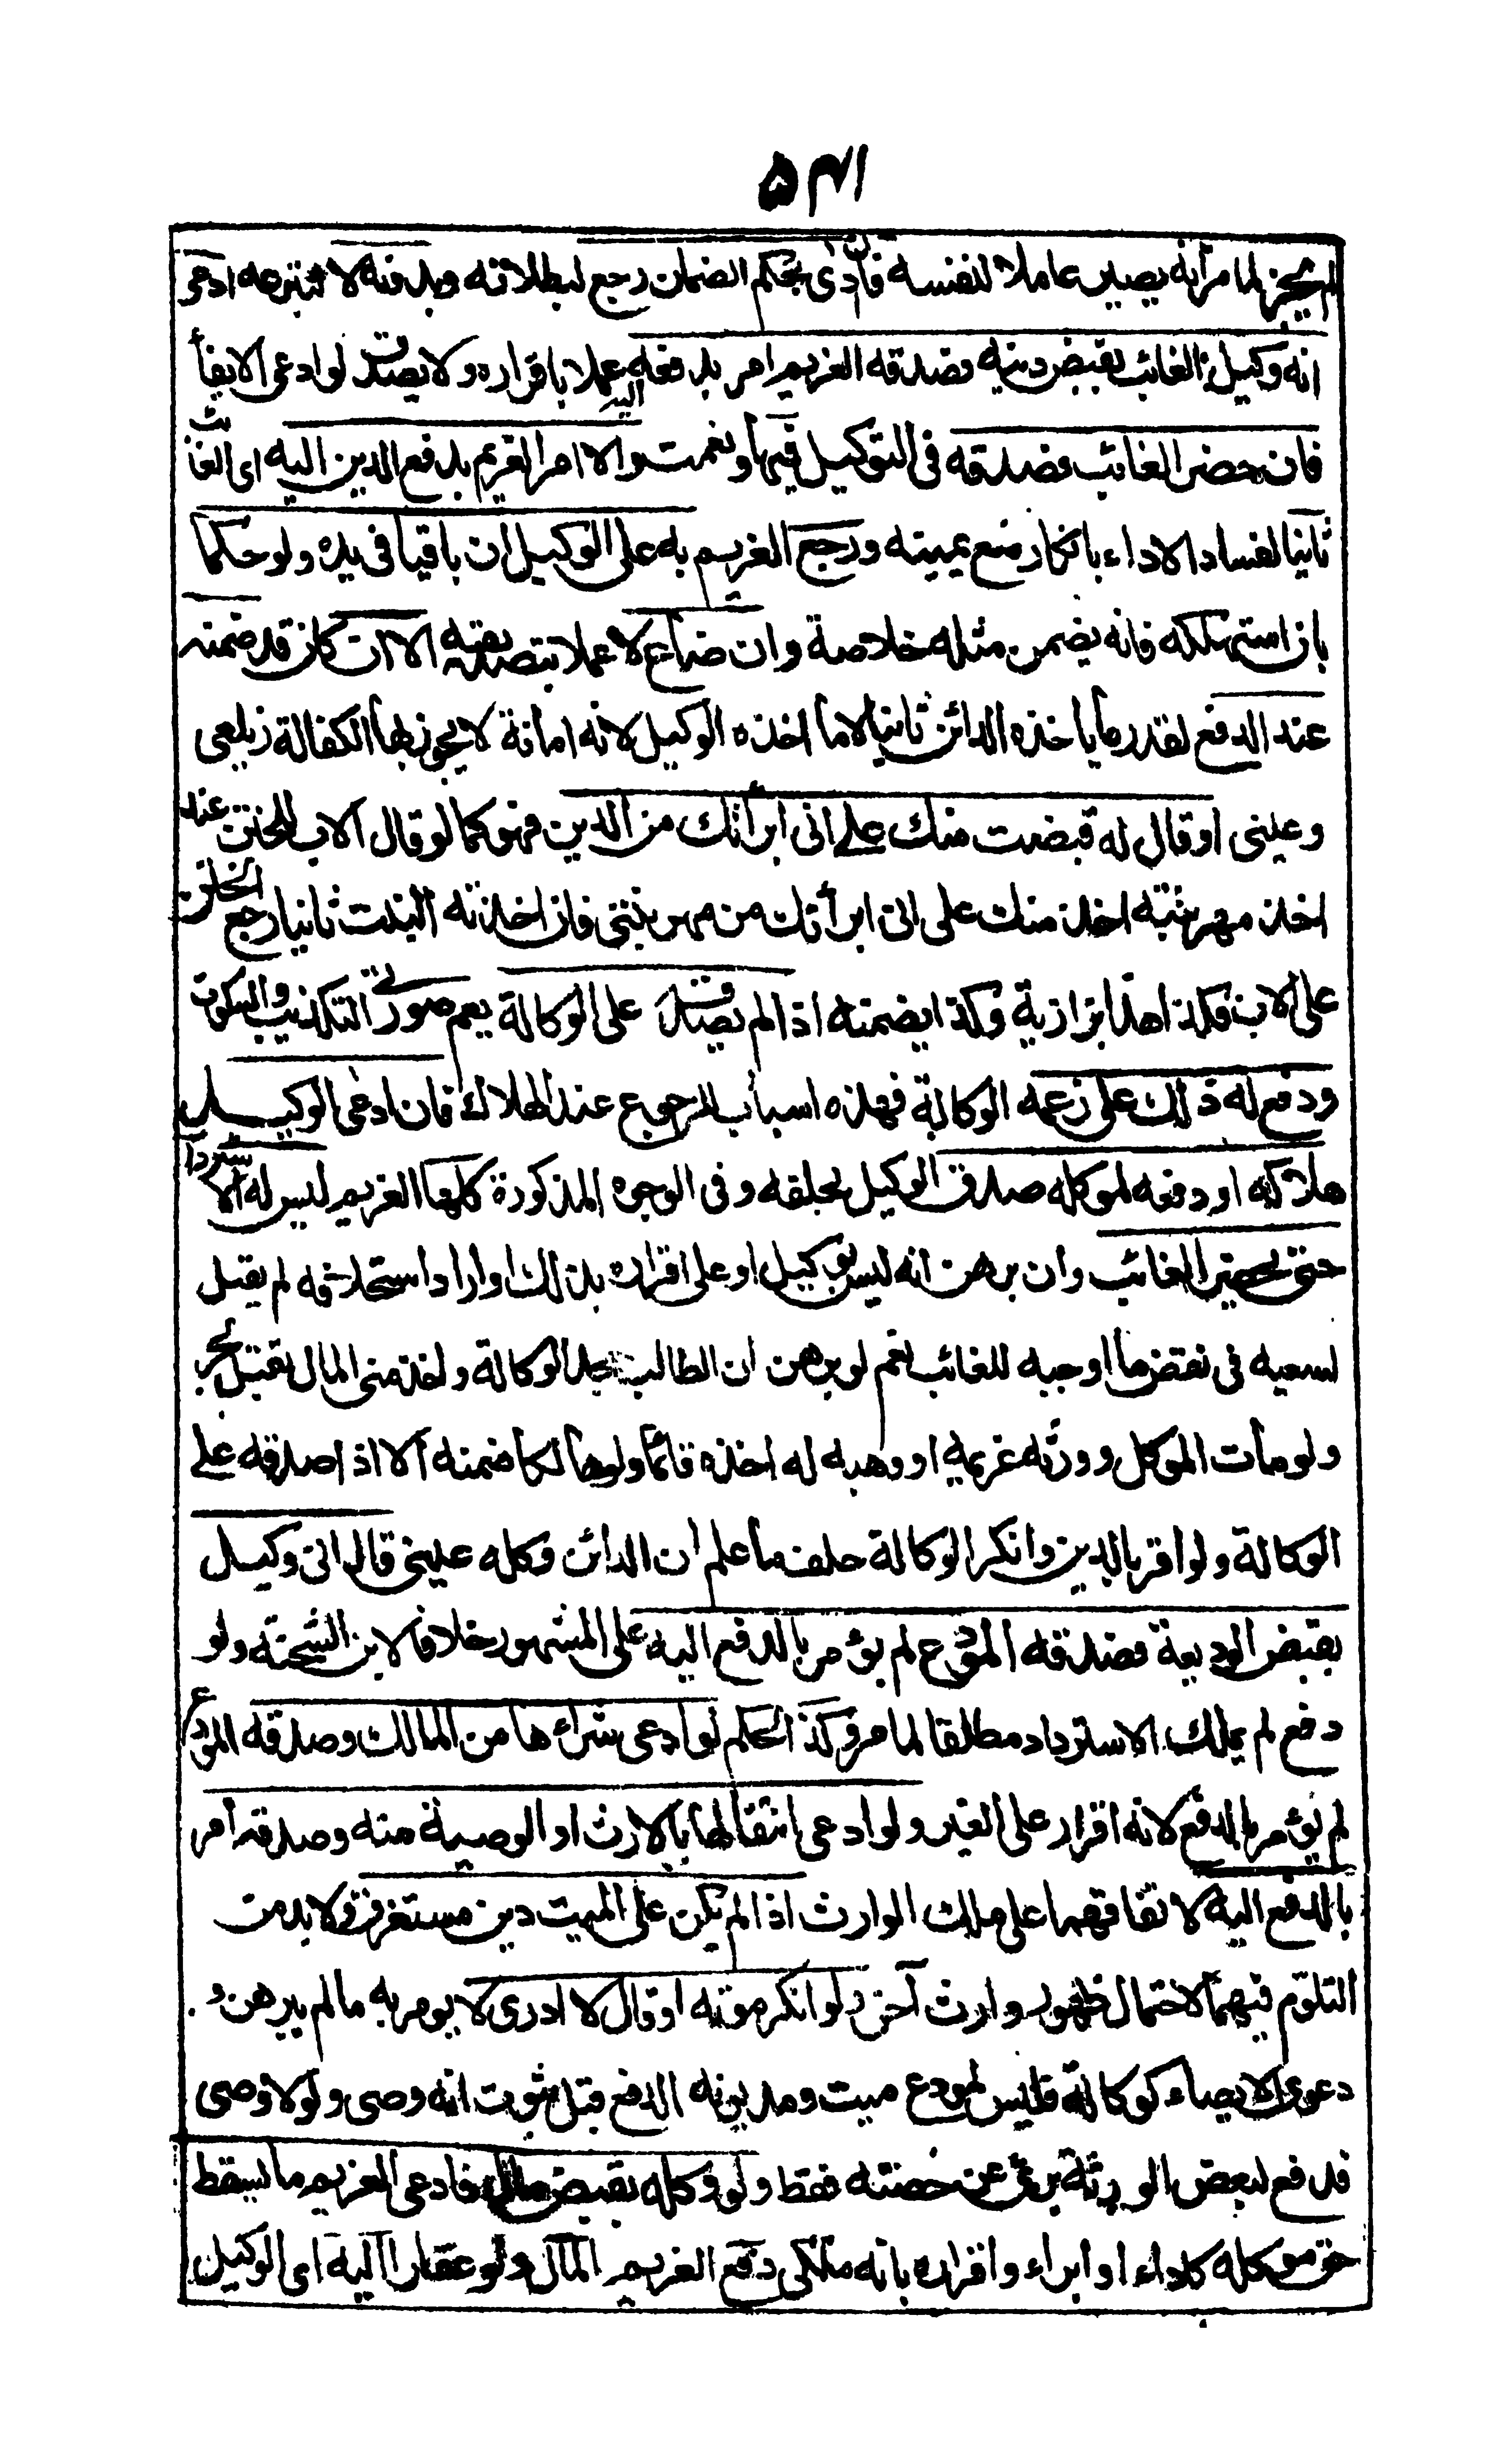 ۵۳۱
لم يجز لما مر انه يصير عاملا لنفسه فان ادى بحكم الضمان رجع لبطلانه وبدونه لا لتبرعه ادعى
انه وكيل الغائب بقبض دينه فصدقه الغريم امر بدفعه اليه عملا باقراره ولا يصدق لو ادعى الايفأ
فان حضر الغائب فصدقه في التوكيل فبها ونعمت والا امر الغريم بدفع الدين اليه اى الغائب
ثانيا لفساد الاداء بانكاره مع يمينه ورجع الغريم به على الوكيل ان باقيا في يده ولو حكما
بان استهلكه فانه يضمن مثله خلاصة وان ضاع لا عملا بتصديقه الا ان كان قد ضمنه
عند الدفع لقدر ما يأخذه الدائن ثانيا لا ما اخذه الوكيل لانه امانة لا يجوز بها الكفالة زيلعى
وعينى او قال له قبضت منك على انى ابرأتك من الدين فهو كما لو قال الاب للختن عند
اخذ مهر بنته اخذ منك على انى ابرأتك من مهر بنتى فان اخذته البنت ثانيا رجع الختن
على الاب فكذا هذا بزازية وكذا يضمنه اذا لم يصدقه على الوكالة يعم صورتى التكذيب والسكوت
ودفع له ذلك على زعمه الوكالة فهذه اسباب للرجوع عند الهلاك فان ادعى الوكيل
هلاكه او دفعه لموكله صدق الوكيل بحلفه وفى الوجوه المذكورة كلها الغريم ليس له الاسترداد
حتى يحضر الغائب وان برهن انه ليس بوكيل او على اقراره بذلك او اراد استحلافه لم يقبل
لسعيه في نقض ما اوجبه للغائب نعم لو برهن ان الطالب جحد الوكالة واخذ منى المال يقبل بحر
ولو مات الموكل وورثه غريمه او وهبه له اخذه قائما ولو هالكا ضمنه الا اذا صدقه على
الوكالة ولو اقر بالدين وانكر الوكالة حلف ما علم ان الدائن وكله عينى قال انى وكيل
بقبض الوديعة فصدقه المودع لم يؤمر بالدفع اليه على المشهور خلافا لابن الشحنة ولو
دفع لم يملك الاسترداد مطلقا لما مر وكذا الحكم لو ادعى شراءها من المالك وصدقه المودع
لم يؤمر بالدفع لانه اقرار على الغير ولو ادعى انتقالها بالارث او الوصية منه وصدقه امر
بالدفع اليه لاتفاقهما على ملك الوارث اذا لم يكن على الميت دين مستغرق ولا بد من
التلوم فيهما لاحتمال ظهور وارث آخر ولو انكر موته او قال لا ادرى لا يومر به ما لم يبرهن و
دعوى الايصاء كوكالة فليس لمودع ميت ومديونه الدفع قبل ثبوت انه وصى ولو لا وصى
فدفع لبعض الورثة برئ عن حصته فقط ولو وكله بقبض مال فادعى الغريم ما يسقط
حق موكله كاداء او ابراء واقراره بانه ملكى دفع الغريم المال ولو عقارا اليه اى الوكيل